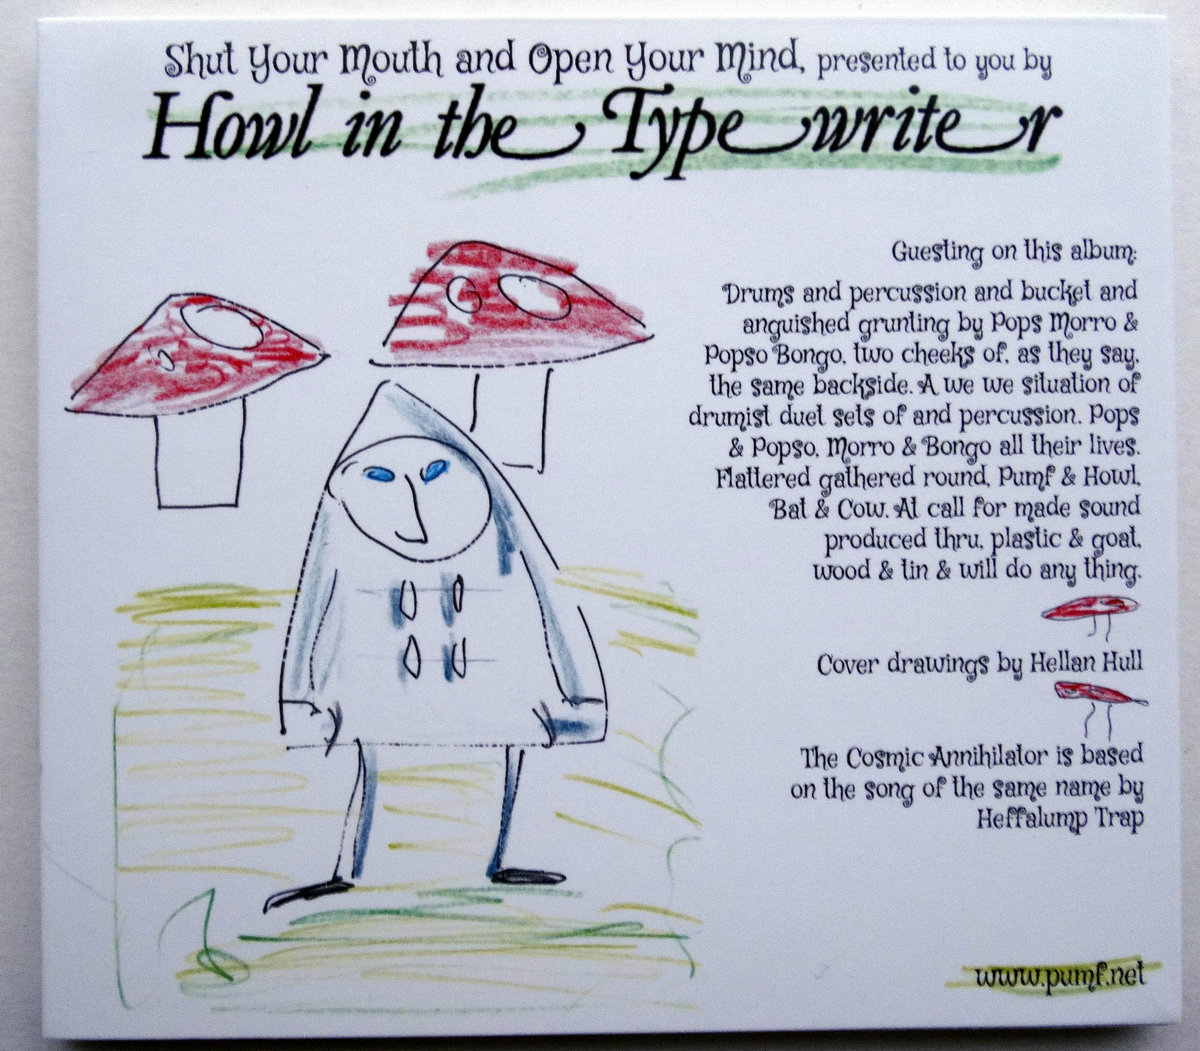 Shut Your Mouth and Open Your Mind, presented to you by
Howl in the Typewriter
Guesting on this album:
Drums and percussion and bucket and
anguished grunting by Pops Morro &
Popso Bongo, two cheeks of, as they say,
the same backside. A we we situation of
drumist duet sets of and percussion. Pops
& Popso, Morro & Bongo all their lives.
Flattered gathered round, Pumf & Howl,
Bat & Cow. At call for made sound
produced thru, plastic & goat,
wood & tin & will do any thing.
Cover drawings by Hellan Hull
The Cosmic Annihilator is based
on the song of the same name by
Heffalump Trap
www.pumf.net